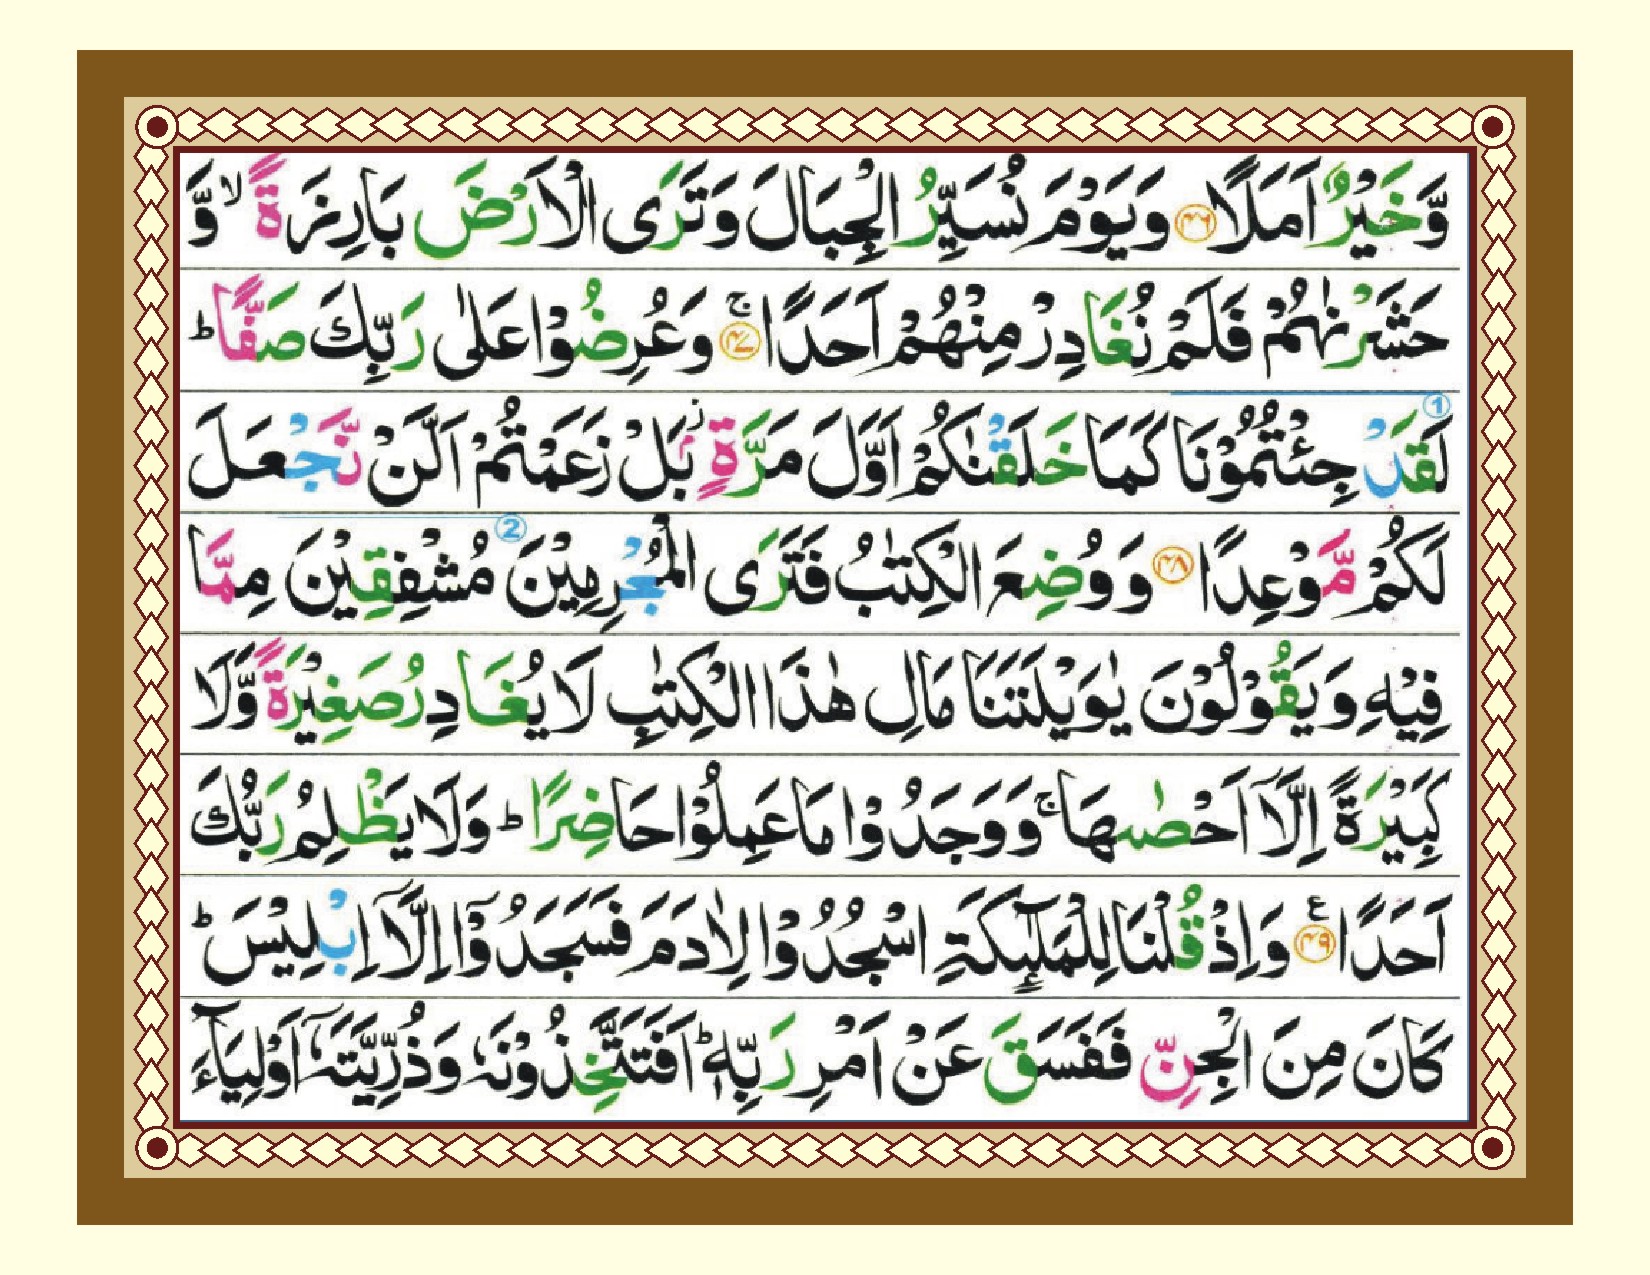 وَّخَيْرٌ اَمَلًا ﴿۴۶﴾ وَيَوْمَ نُسَيِّرُ الْجِبَالَ وَتَرَى الْاَرْضَ بَارِزَةً ۙ وَّ
حَشَرْنٰهُمْ فَلَمْ نُغَادِرْ مِنْهُمْ اَحَدًا ۚ ﴿۴۷﴾ وَعُرِضُوْا عَلٰى رَبِّكَ صَفًّا ؕ
① لَقَدْ جِئْتُمُوْنَا كَمَا خَلَقْنٰكُمْ اَوَّلَ مَرَّةٍ ۢ ز بَلْ زَعَمْتُمْ اَلَّنْ نَّجْعَلَ
لَكُمْ مَّوْعِدًا ﴿۴۸﴾ وَوُضِعَ الْكِتٰبُ فَتَرَى الْمُجْرِمِيْنَ ② مُشْفِقِيْنَ مِمَّا
فِيْهِ وَيَقُوْلُوْنَ يٰوَيْلَتَنَا مَالِ هٰذَا الْكِتٰبِ لَا يُغَادِرُ صَغِيْرَةً وَّلَا
كَبِيْرَةً اِلَّاۤ اَحْصٰىهَا ۚ وَوَجَدُوْا مَا عَمِلُوْا حَاضِرًا ؕ وَلَا يَظْلِمُ رَبُّكَ
اَحَدًا ﴿۴۹﴾ ع وَاِذْ قُلْنَا لِلْمَلٰٓئِكَةِ اسْجُدُوْا لِاٰدَمَ فَسَجَدُوْۤا اِلَّاۤ اِبْلِيْسَ ؕ
كَانَ مِنَ الْجِنِّ فَفَسَقَ عَنْ اَمْرِ رَبِّهٖ ؕ اَفَتَتَّخِذُوْنَهٗ وَذُرِّيَّتَهٗۤ اَوْلِيَآءَ